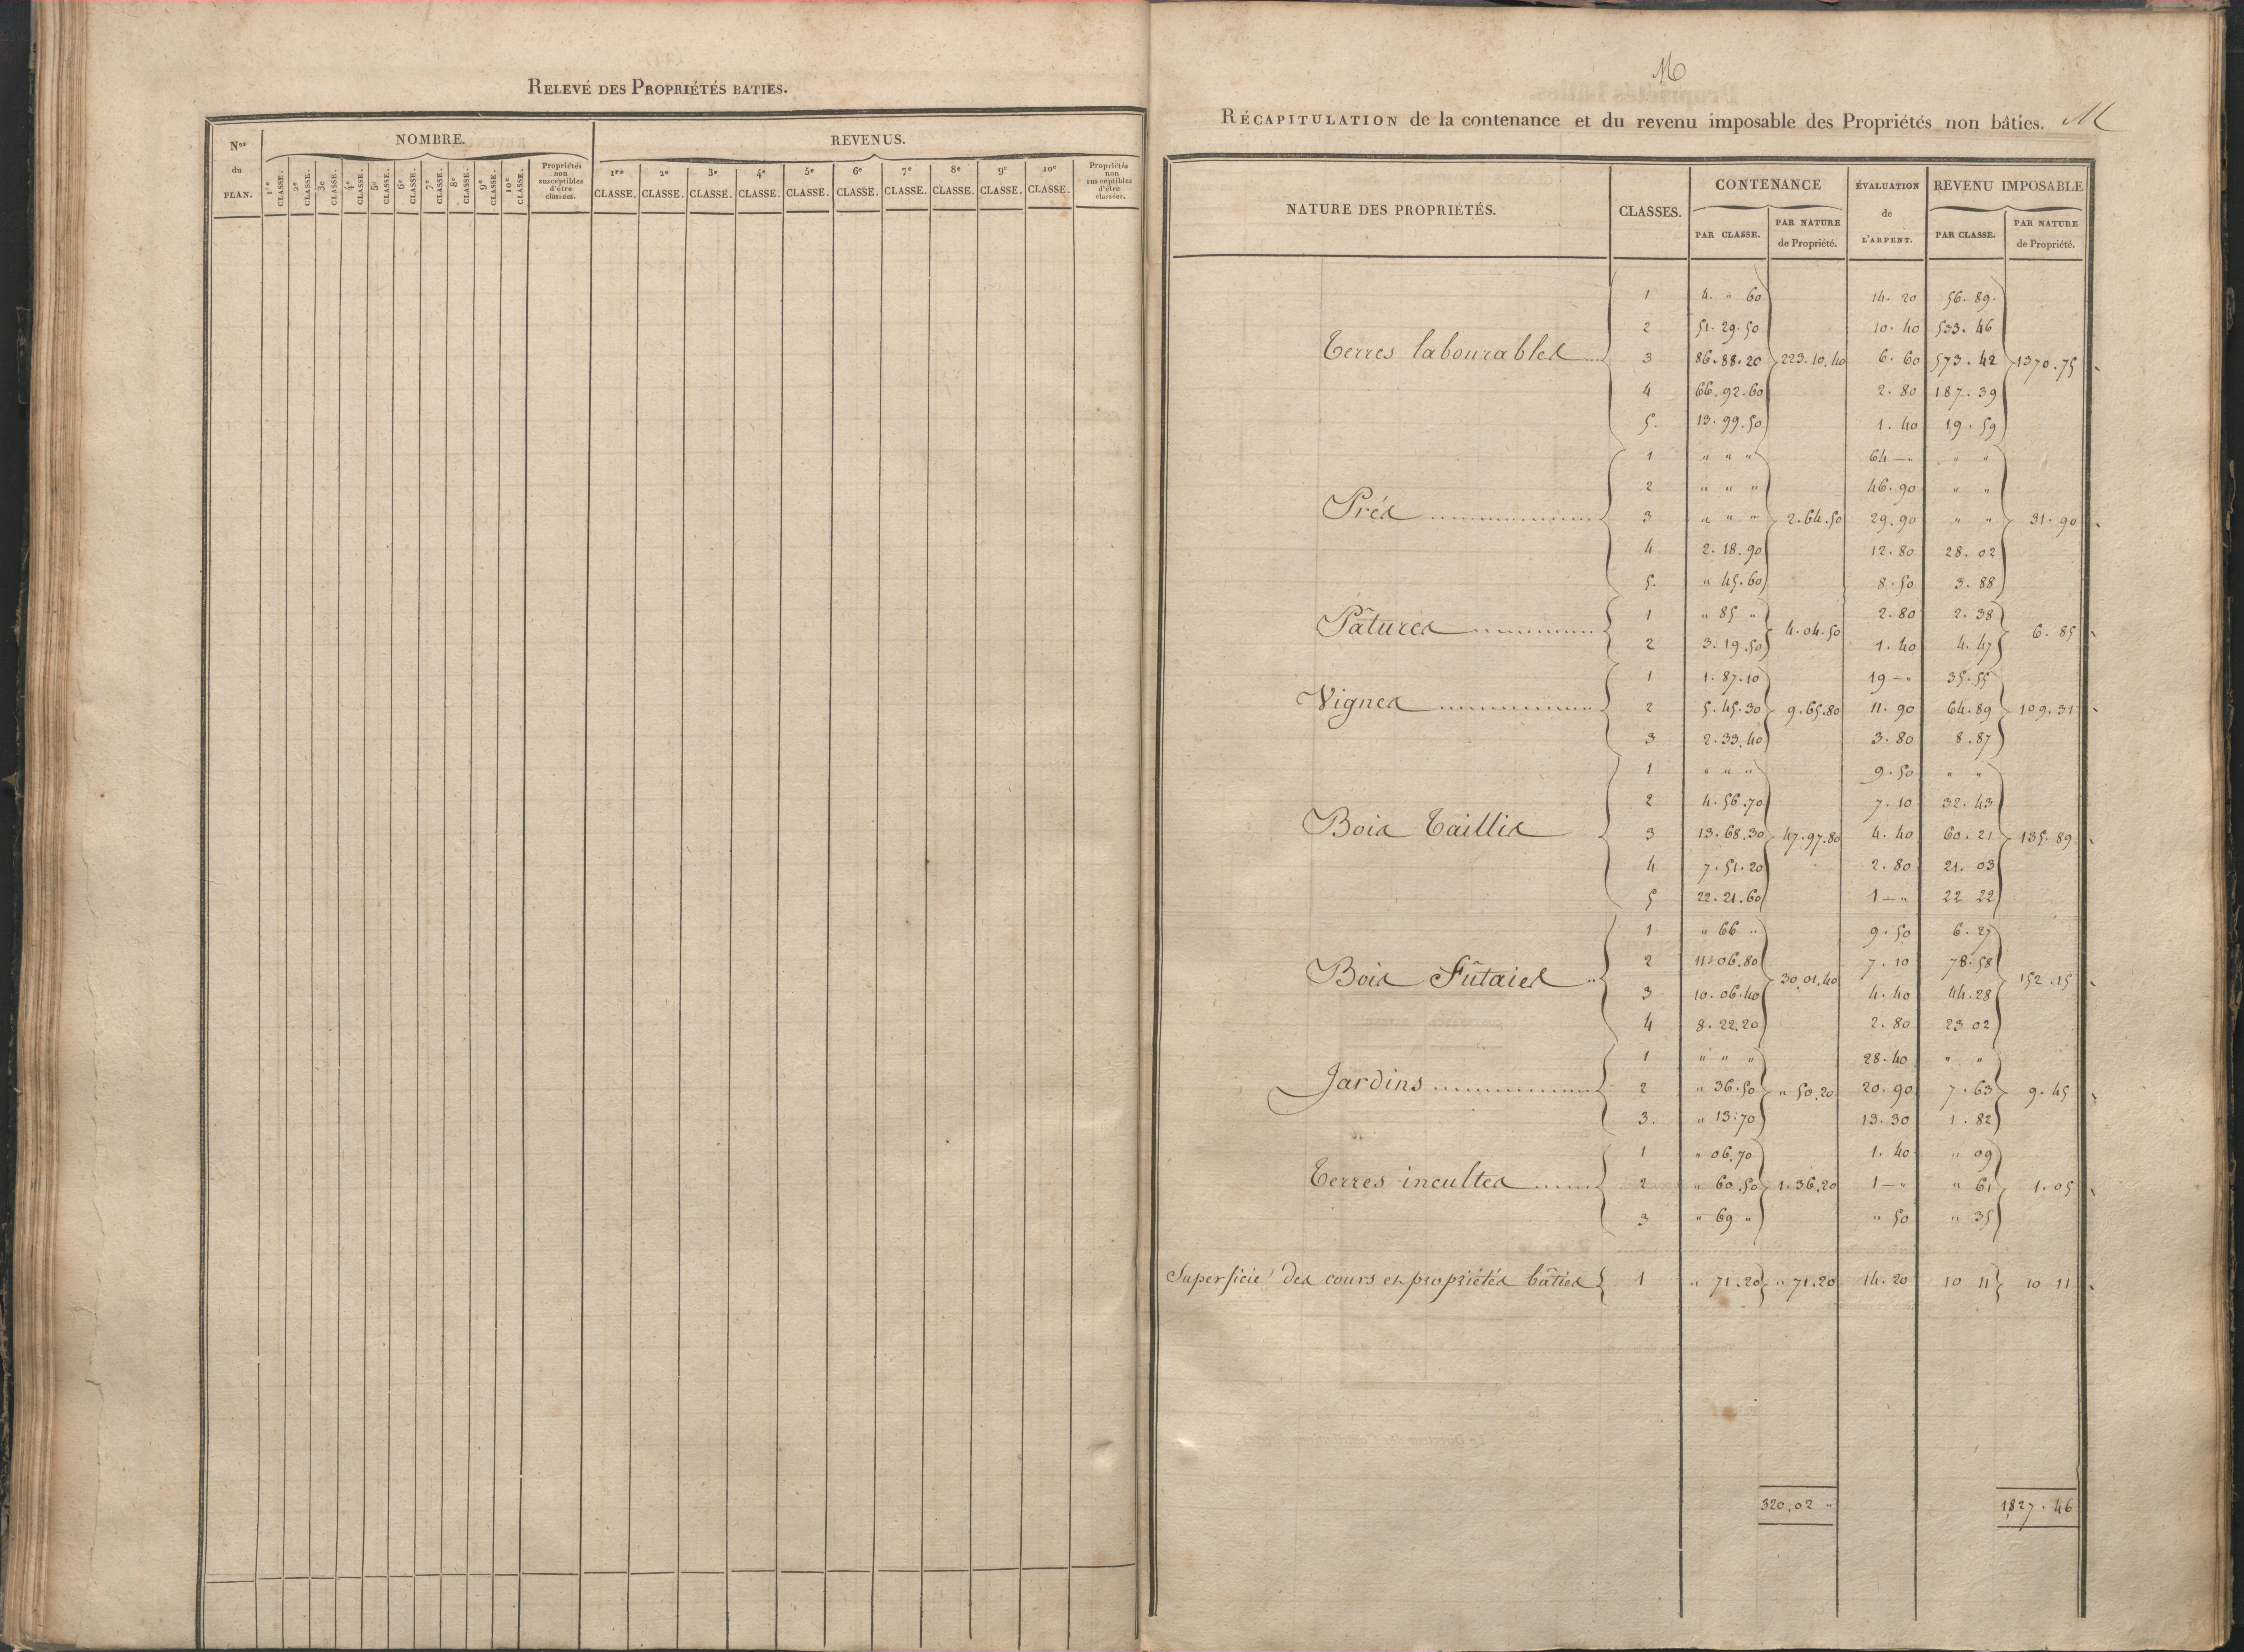 RELEVÉ DES PROPRIÉTÉS BATIES.
Nos du PLAN.
NOMBRE.
REVENUS.
1re CLASSE. 2e CLASSE. 3e CLASSE. 4e CLASSE. 5e CLASSE. 6e CLASSE. 7e CLASSE. 8e CLASSE. 9e CLASSE. 10e CLASSE. Propriétés non susceptibles d'être classées.
1re CLASSE. 2e CLASSE. 3e CLASSE. 4e CLASSE. 5e CLASSE. 6e CLASSE. 7e CLASSE. 8e CLASSE. 9e CLASSE. 10e CLASSE. Propriétés non susceptibles d'être classées.
RÉCAPITULATION de la contenance et du revenu imposable des Propriétés non bâties. M
NATURE DES PROPRIÉTÉS. CLASSES. CONTENANCE ÉVALUATION de L'ARPENT. REVENU IMPOSABLE
PAR CLASSE. PAR NATURE de Propriété. PAR CLASSE. PAR NATURE de Propriété.
1 4. " 60 14. 20 56. 89.
2 51. 29. 50 10. 40 533. 46
Terres labourables 3 86. 88. 20 223. 10. 40 6. 60 573. 42 1370. 75
4 66. 92. 60 2. 80 187. 39
5. 13. 99. 50 1. 40 19. 59
1 " " " 64 — " " "
2 " " " 46. 90 " "
Prés 3 " " " 2. 64. 50 29. 90 " " 31. 90
4 2. 18. 90 12. 80 28. 02
5. " 45. 60 8. 50 3. 88
1 " 85 " 2. 80 2. 38
Pâtures 4. 04. 50 6. 85
2 3. 19. 50 1. 40 4. 47
1 1. 87. 10 19 — " 35. 55
Vignes 2 5. 45. 30 9. 65. 80 11. 90 64. 89 109. 31
3 2. 33. 40 3. 80 8. 87
1 " " " 9. 50 " "
2 4. 56. 70 7. 10 32. 43
Bois Taillis 3 13. 68. 30 47. 97. 80 4. 40 60. 21 135. 89
4 7. 51. 20 2. 80 21. 03
5 22. 21. 60 1 — " 22 22
1 " 66 " 9. 50 6. 27
2 11. 06. 80 7. 10 78. 58
Bois Fûtaies 30. 01. 40 152. 15
3 10. 06. 40 4. 40 44. 28
4 8. 22. 20 2. 80 23 02
1 " " " 28. 40 " "
Jardins 2 " 36. 50 " 50. 20 20. 90 7. 63 9. 45
3. " 13. 70 13. 30 1. 82
1 " 06. 70 1. 40 " 09
Terres incultes 2 " 60. 50 1. 36. 20 1 — " " 61 1. 05
3 " 69 " " 50 " 35
Superficie des cours et propriétés bâties 1 " 71. 20 " 71. 20 14. 20 10 11 10 11
320. 02 " 1827. 46